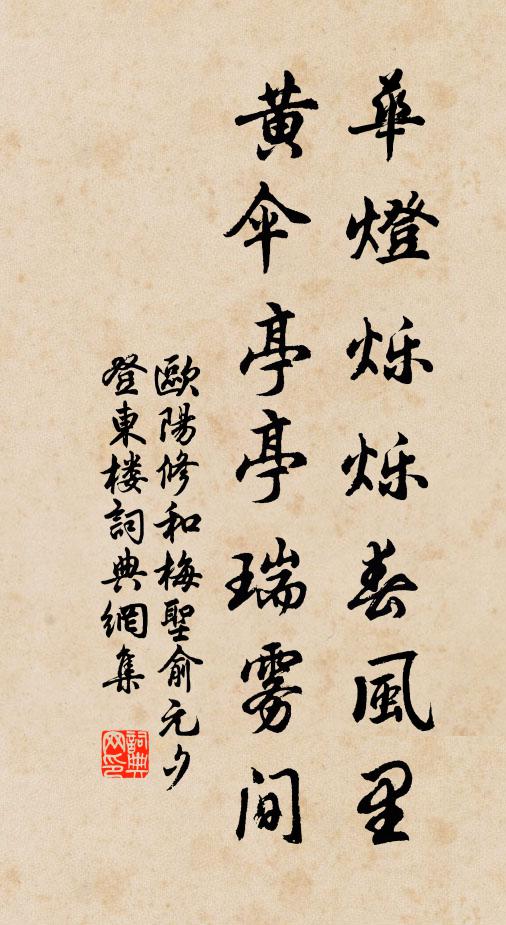 華燈烁烁春風里
黃傘亭亭瑞雾間
歐陽修和梅聖俞元夕
登東楼詞典網集
詞典网印